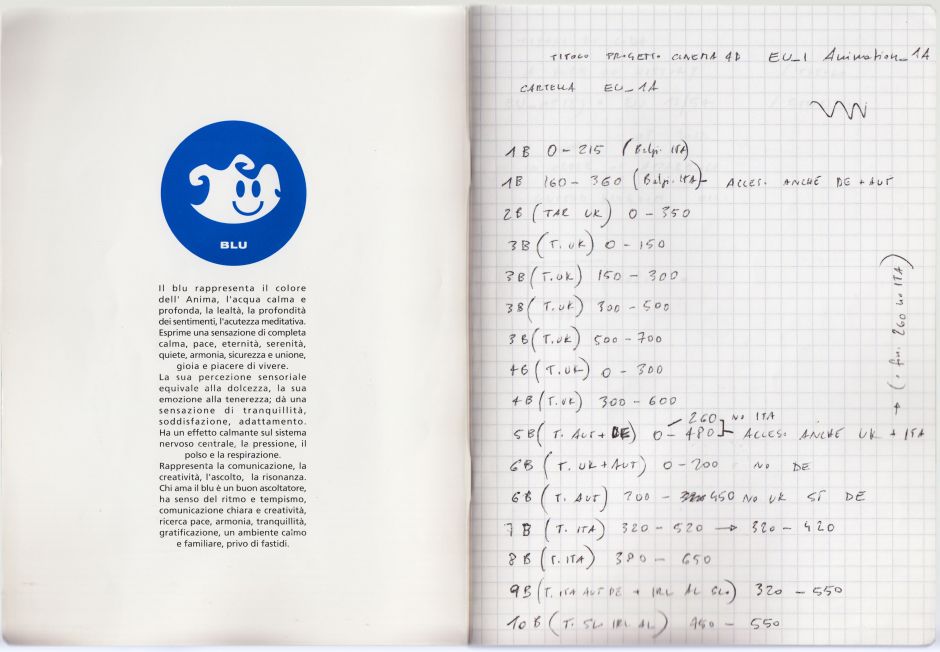 BLU
Il blu rappresenta il colore
dell' Anima, l'acqua calma e
profonda, la lealtà, la profondità
dei sentimenti, l'acutezza meditativa.
Esprime una sensazione di completa
calma, pace, eternità, serenità,
quiete, armonia, sicurezza e unione,
gioia e piacere di vivere.
La sua percezione sensoriale
equivale alla dolcezza, la sua
emozione alla tenerezza; dà una
sensazione di tranquillità,
soddisfazione, adattamento.
Ha un effetto calmante sul sistema
nervoso centrale, la pressione, il
polso e la respirazione.
Rappresenta la comunicazione, la
creatività, l'ascolto, la risonanza.
Chi ama il blu è un buon ascoltatore,
ha senso del ritmo e tempismo,
comunicazione chiara e creatività,
ricerca pace, armonia, tranquillità,
gratificazione, un ambiente calmo
e familiare, privo di fastidi.
TITOLO PROGETTO CINEMA 4D EU_1 Animation_1A
CARTELLA EU_1A
1B 0-215 (Belgi. ITA)
1B 160-360 (Belgi. ITA) - ACCES. ANCHE DE + AUT
2B (TAR UK) 0-350
3B (T. UK) 0-150
3B (T. UK) 150-300
3B (T. UK) 300-500
3B (T. UK) 500-700
4B (T. UK) 0-300
4B (T. UK) 300-600
260 NO ITA
5B (T. AUT + DE) 0-480 ACCES. ANCHE UK + ITA
6B (T. UK + AUT) 0-200 NO DE
6B (T. AUT) 200-450 NO UK SI DE
7B (T. ITA) 320-520 → 320-420
8B (T. ITA) 380-650
9B (T. ITA AUT DE + IRL AL SLO) 320-550
10B (T. SLO IRL AL) 450-550
→ 260 no ITA)